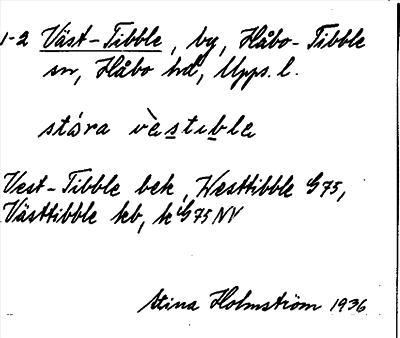 1-2 Väst-Tibble, by, Håbo-Tibble
sn, Håbo hd, Upps. l.
stóra vè̀stıblɛ
Vest-Tibble bek, Westtibble G75,
Västtibble kb, k G75 NV
Stina Holmström 1936